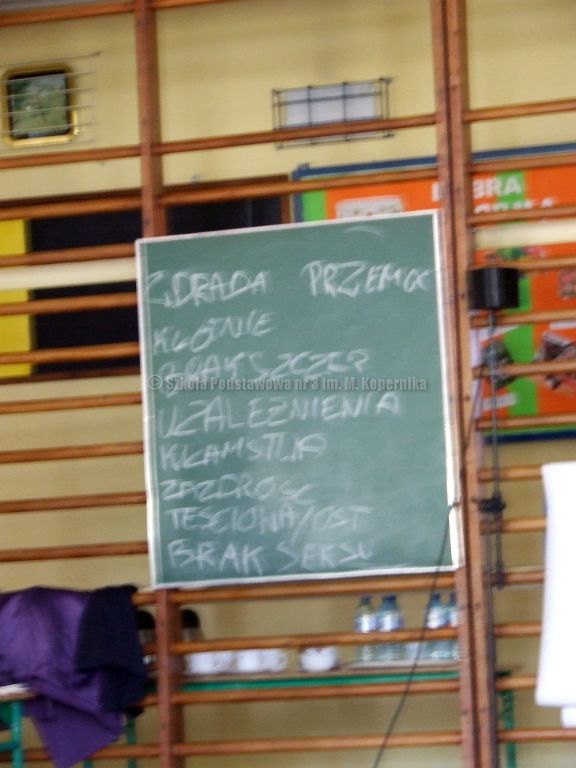 BRA
ZDRADA PRZEMOC
KŁÓTNIE
BRAK SZCZEP
© Szkoła Podstawowa nr 3 im. M. Kopernika
UZALEŻNIENIA
KŁAMSTWA
ZAZDROŚĆ
TEŚCIOWA/
BRAK SEKSU